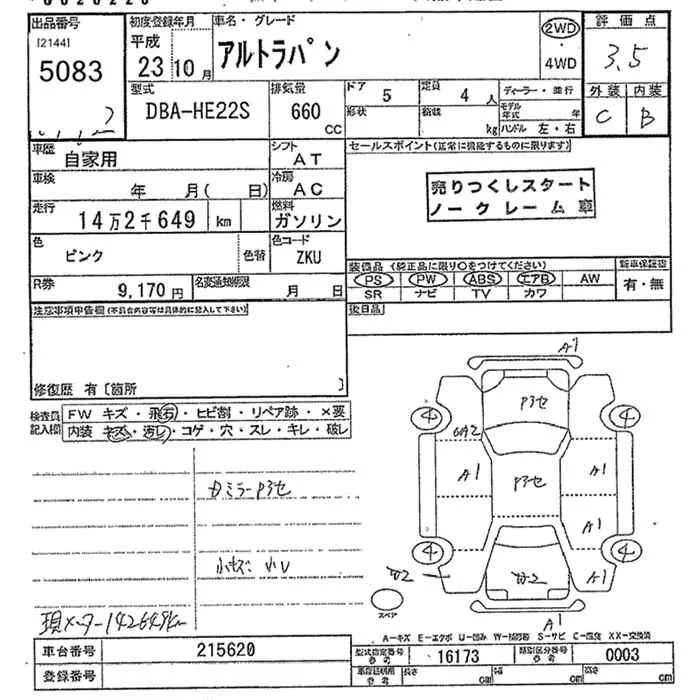 出品番号 初度登録年月 車名・グレード 評価点
[2144] 平成 アルトラパン 2WD
5083 23年10月 ・4WD 3.5
型式 排気量 ドア 5 定員 4人 ディーラー・並行 外装 内装
DBA-HE22S 660 CC 形状 積載 kg モデル年式 年 C B
ハンドル 左・右
車歴 自家用 シフト AT セールスポイント(正常に機能するものに限ります)
車検 年 月( 日) 冷房 AC 売りつくしスタート
走行 14万2千649 km 燃料 ガソリン ノークレーム車
色 ピンク 色替 色コード ZKU
装備品 (純正品に限り○をつけてください) 新車保証書
PS PW ABS エアB AW 有・無
SR ナビ TV カワ
R券 9,170円 名変通知期限 月 日
注意事項申告欄(不具合内容等は具体的に記入して下さい) 後日品
修復歴 有〔箇所 〕
検査員記入欄 FW キズ・飛石・ヒビ割・リペア跡・×要
内装 キズ・汚レ・コゲ・穴・スレ・キレ・破レ
A1
P3セ
4 4
A1 P3セ A1
A1
4 4
A1
スペア A1
小キズ 小U
現メーター142649km
A-キズ E-エクボ U-凹み W-補修跡 S-サビ C-腐食 XX-交換済
車台番号 215620 型式指定番号 参考 16173 類別区分番号 参考 0003
登録番号 車庫証明用 参考 長さ cm 幅 cm 高さ cm